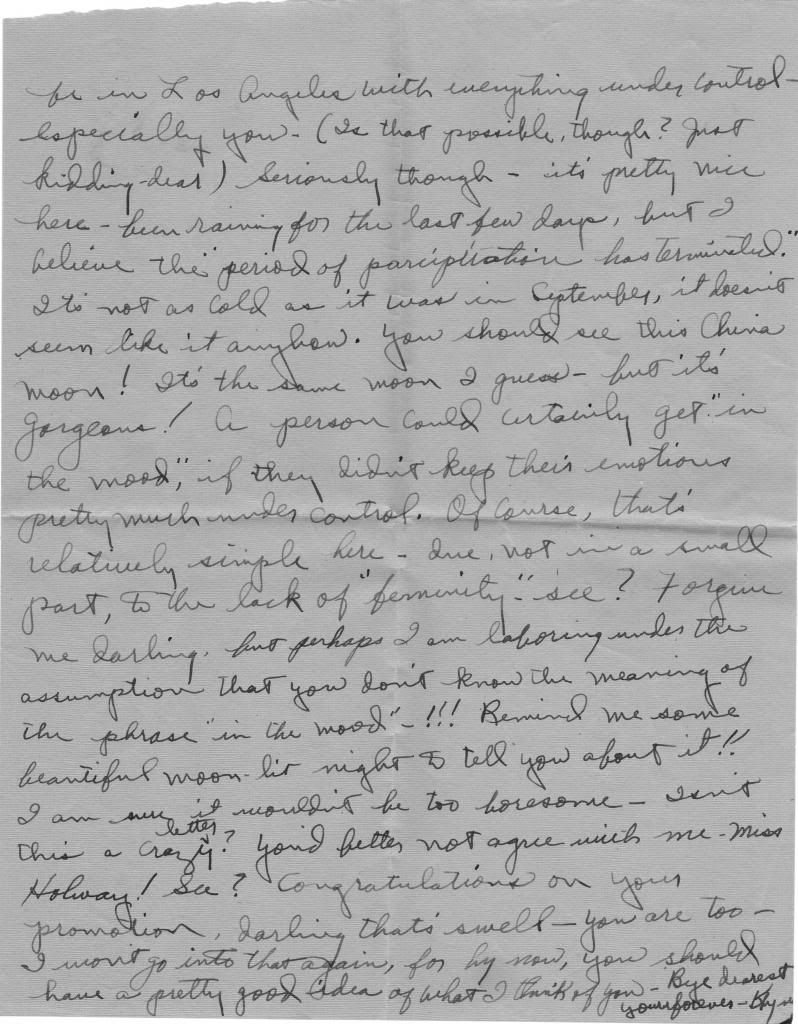 be in Los Angeles with everything under control-
especially you - (Is that possible, though? Just
kidding-dear) Seriously though - it's pretty nice
here - been raining for the last few days, but I
believe the "period of parcipitation has terminated."
It's not as cold as it was in September, it doesn't
seem like it anyhow. You should see this China
moon! It's the same moon I guess - but it's
gorgeous! A person could certainly get "in
the mood," if they didn't keep their emotions
pretty much under control. Of course, that's
relatively simple here - due, not in a small
part, to the lack of "feminity" - see? Forgive
me darling, but perhaps I am laboring under the
assumption that you don't know the meaning of
the phrase "in the mood" - !!! Remind me some
beautiful moon-lit night to tell you about it!!
I am sure it wouldn't be too boresome - Isn't
this a crazy letter? You'd better not agree with me - Miss
Holway! See? Congratulations on your
promotion, darling that's swell - you are too -
I won't go into that again, for by now, you should
have a pretty good idea of what I think of you - Bye dearest
yours forever -